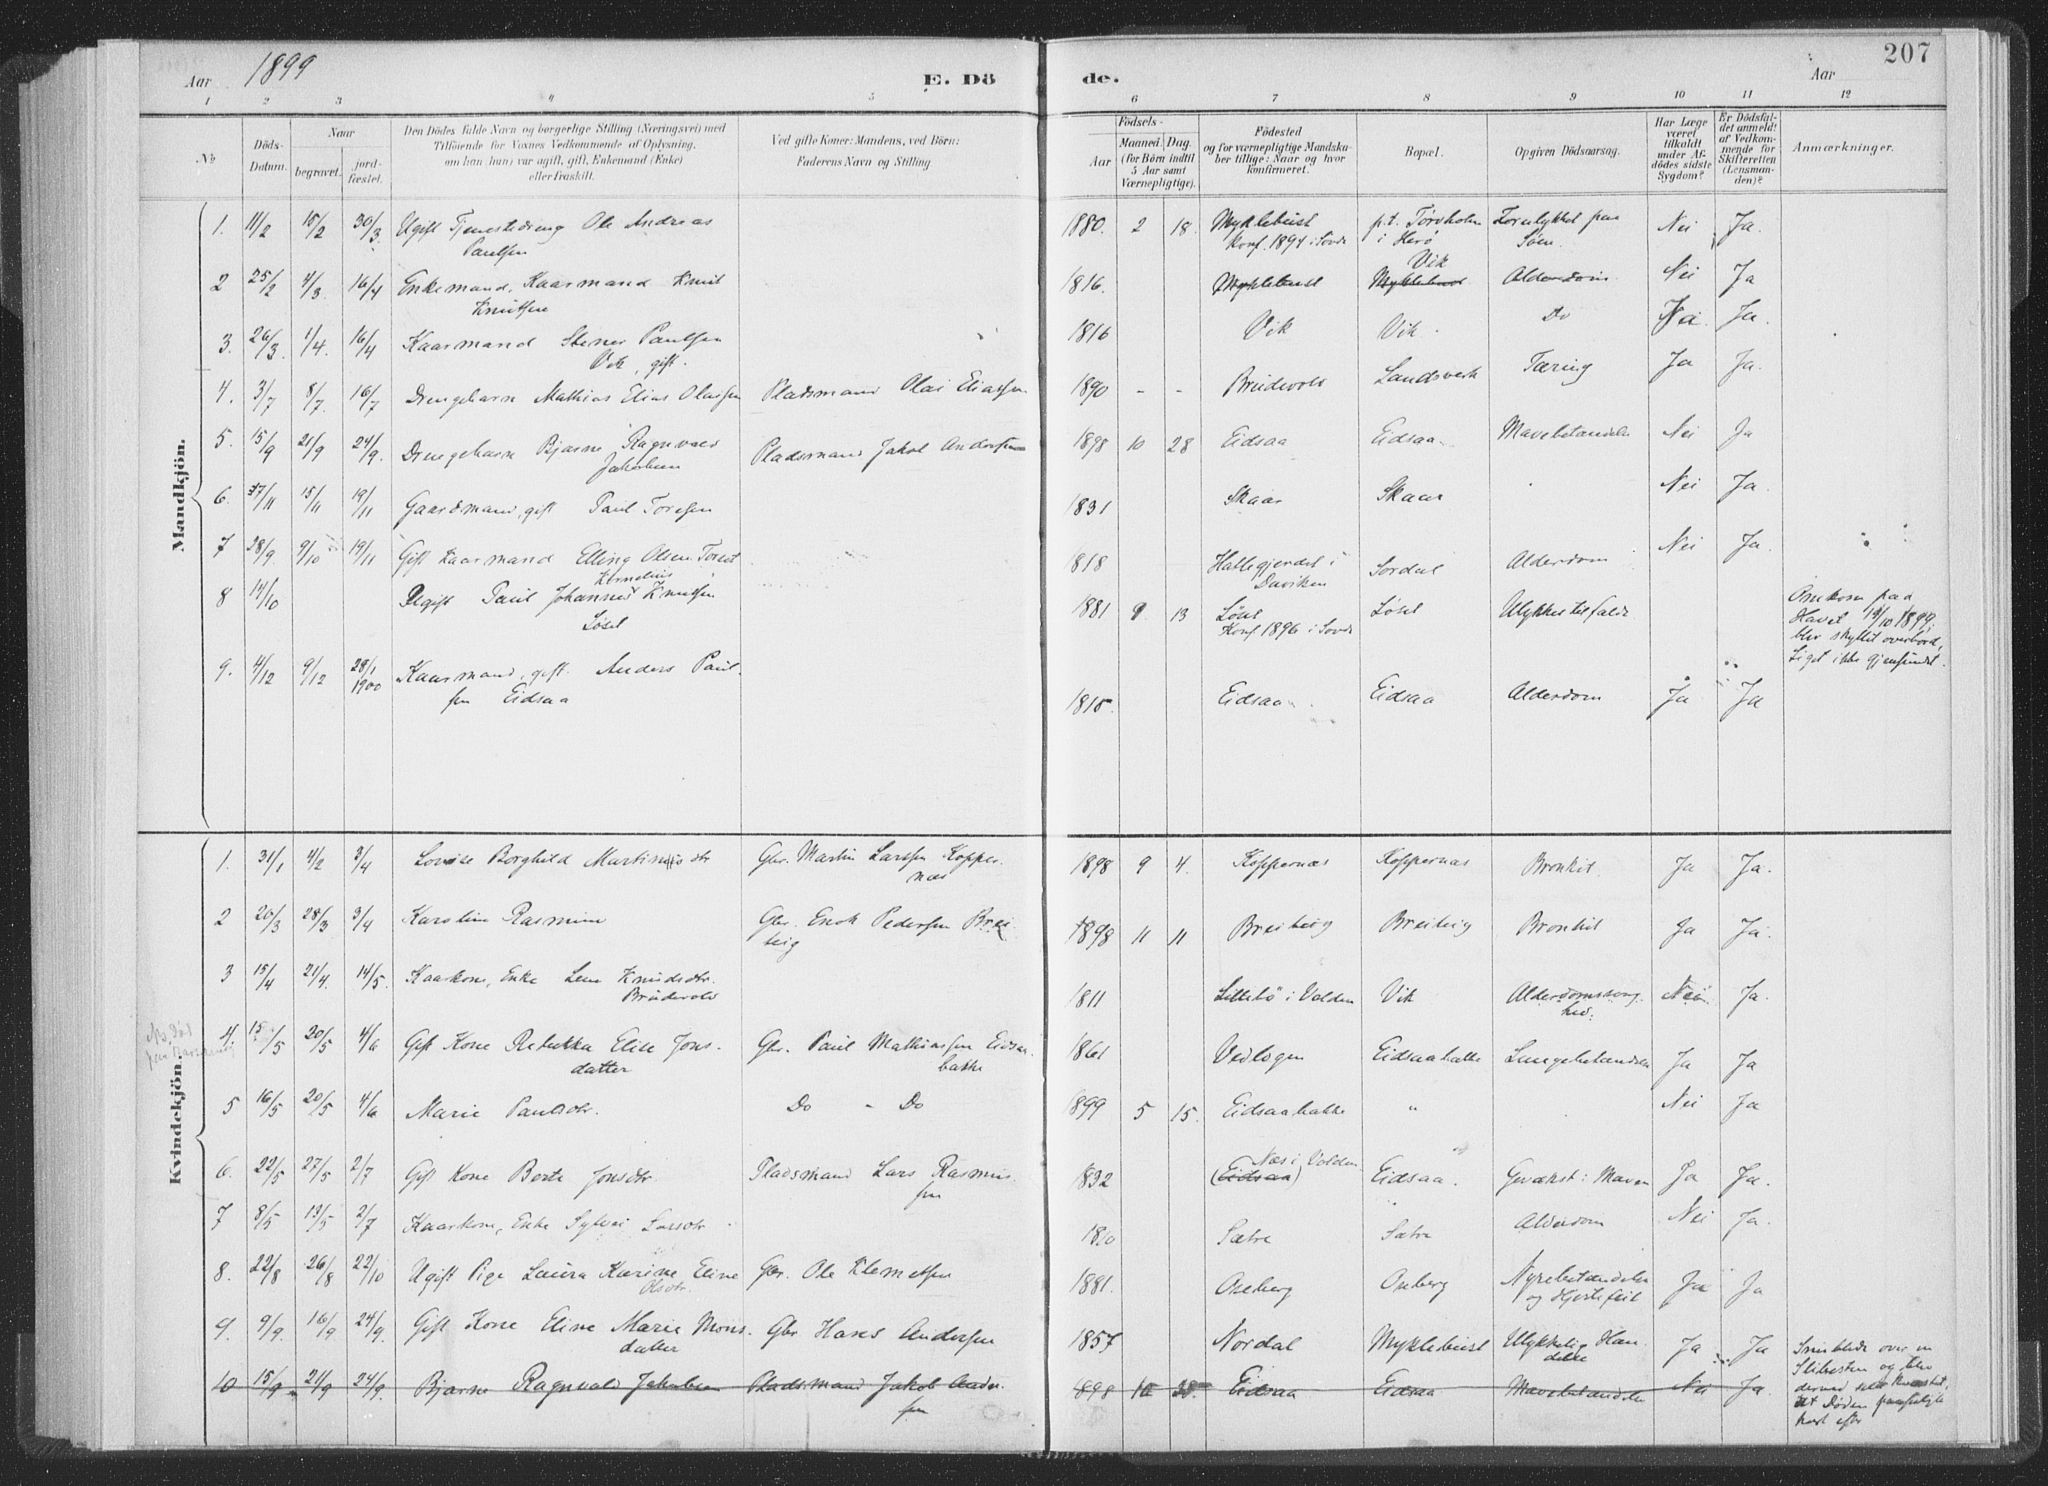 207
Aar 1899 E. Dö de. Aar
1 2 3 4 5 6 7 8 9 10 11 12
No
Döds-
Datum.
Naar
begravet.
jord-
fæstet.
Den Dödes fulde Navn og borgerlige Stilling (Næringsvei) med
Tilföiende for Voxnes Vedkommende af Oplysning,
om han (hun) var ugift, gift, Enkemand (Enke)
eller fraskilt.
Ved gifte Koner: Mandens, ved Börn:
Faderens Navn og Stilling.
Födsels-
Aar
Maaned. Dag.
(for Börn indtil
5 Aar samt
Værnepligtige).
Födested
og for værnepligtige Mandska-
ber tillige: Naar og hvor
konfirmeret.
Bopæl.
Opgiven Dödsaarsag.
Har Læge
været
tilkaldt
under Af-
dödes sidste
Sygdom?
Er Dödsfal-
det anmeldt
af Vedkom-
mende for
Skifteretten
(Lensman-
den)?
Anmærkninger.
Mandkjön.
1. 11/2 15/2 30/3. Ugift Tjenestedreng Ole Andreas
Paulsen
1880. 2 18. Myklebust
Konf. 1894 i Sövde
p.t. Torvholm
i Herö
Forulykket paa
Söen.
Nei Ja.
2 25/2 4/3. 16/4 Enkemand, Kaarmand Knut
Knutsen
1816. Myklebust Vik
Myklebust Alderdom. Nei Ja
3. 26/3. 1/4. 16/4 Kaarmand Stener Paulsen
Vik, gift.
1816 Vik Vik Do Ja.
4. 3/7 8/7. 16/7 Drengebarn Mathias Elias Olaisen Pladsmand Olai Eliassen
1890 - - Brudevold Landsverk Tæring Ja Ja.
5. 15/9 21/9 24/9. Drengebarn Bjarne Ragnvald
Jakobsen
Pladsmand Jakob Andersen
1898 10 28 Eidsaa Eidsaa Mavebetændelse Nei Ja
6. 7/11 15/11 19/11 Gaardmand, gift Paul Toresen
1831 Skaar Skaar Nei Ja.
7 28/9 9/10 19/11 Gift Kaarmand Elling Olsen
1818 Hallegjerdet i
Daviken
Sordal Alderdom Nei Ja.
8 14/10 Ugift Paul Johannes Kornelius Knutsen
Løset
1881 9 13 Løset
Konf 1896 i Sövde
Løset Ulykkestilfælde
Omkom paa
Havet 14/10 1899,
blev skyllet overbord,
Liget ikke gjenfundet.
9. 4/12 9/12 28/1
1900
Kaarmand, gift. Anders Paul-
sen Eidsaa
1815. Eidsaa Eidsaa Alderdom Ja Ja
Kvindekjön.
1. 31/1 4/2 3/4 Lovise Borghild Martinsdtr Gbr. Martin Larssen Kopper-
næs
1898 9 4. Koppernæs Koppernæs Bronkit. Ja Ja.
2 20/3 28/3 3/4 Karoline Rasmine Gbr. Enok Pedersen Brei
teig
1898 11 11 Breiteig Breiteig Bronkit Ja Ja.
3 15/4 21/4. 14/5. Kaarkone, Enke Lene Knudsdtr.
Brudevold
1811 Lillebö i Volden Vik Alderdomssvag
hed.
Nei Ja.
4. 15/5 20/5 4/6 Gift Kone Rebekka Elise Jons-
datter
Gbr. Paul Mathiassen Eidsaa-
bakke
1861 Vedlogen Eidsaabakke Lungebetændelse Ja Ja
5 16/5 20/5 4/6 Marie Paulsdtr. Do - Do
1899 5 15. Eidsaabakke " Nei Ja
6. 22/5 27/5 2/7 Gift Kone Berte Jonsdtr Pladsmand Lars Rasmus
sen
1832 Næs i Volden
(Eidsaa) Eidsaa. Gevækst i Maven Ja Ja.
7 8/5 13/5 2/7 Kaarkone, Enke Sylvei Larsdtr
Sætre Sætre Alderdom Nei Ja.
8. 22/8 26/8 22/10 Ugift Pige Laura Karine Eline
Olsdtr.
Gbr. Ole Klemetsen
1881. Oseberg Oseberg Nyrebetændelse
og Hjertefeil
Ja Ja
9. 9/9. 16/9 24/9. Gift Kone Eline Marie Mons-
datter
Gbr Hans Andersen
1857 Nordal Myklebust Ulykkelig Hæn
delse
Ja Ja
10 15/9 21/9 24/9. Bjarne Ragnvald Jakobsen Pladsmand Jakob Ander
sen
1898 10 28 Eidsaa Eidsaa Mavebetændelse Nei Ja.